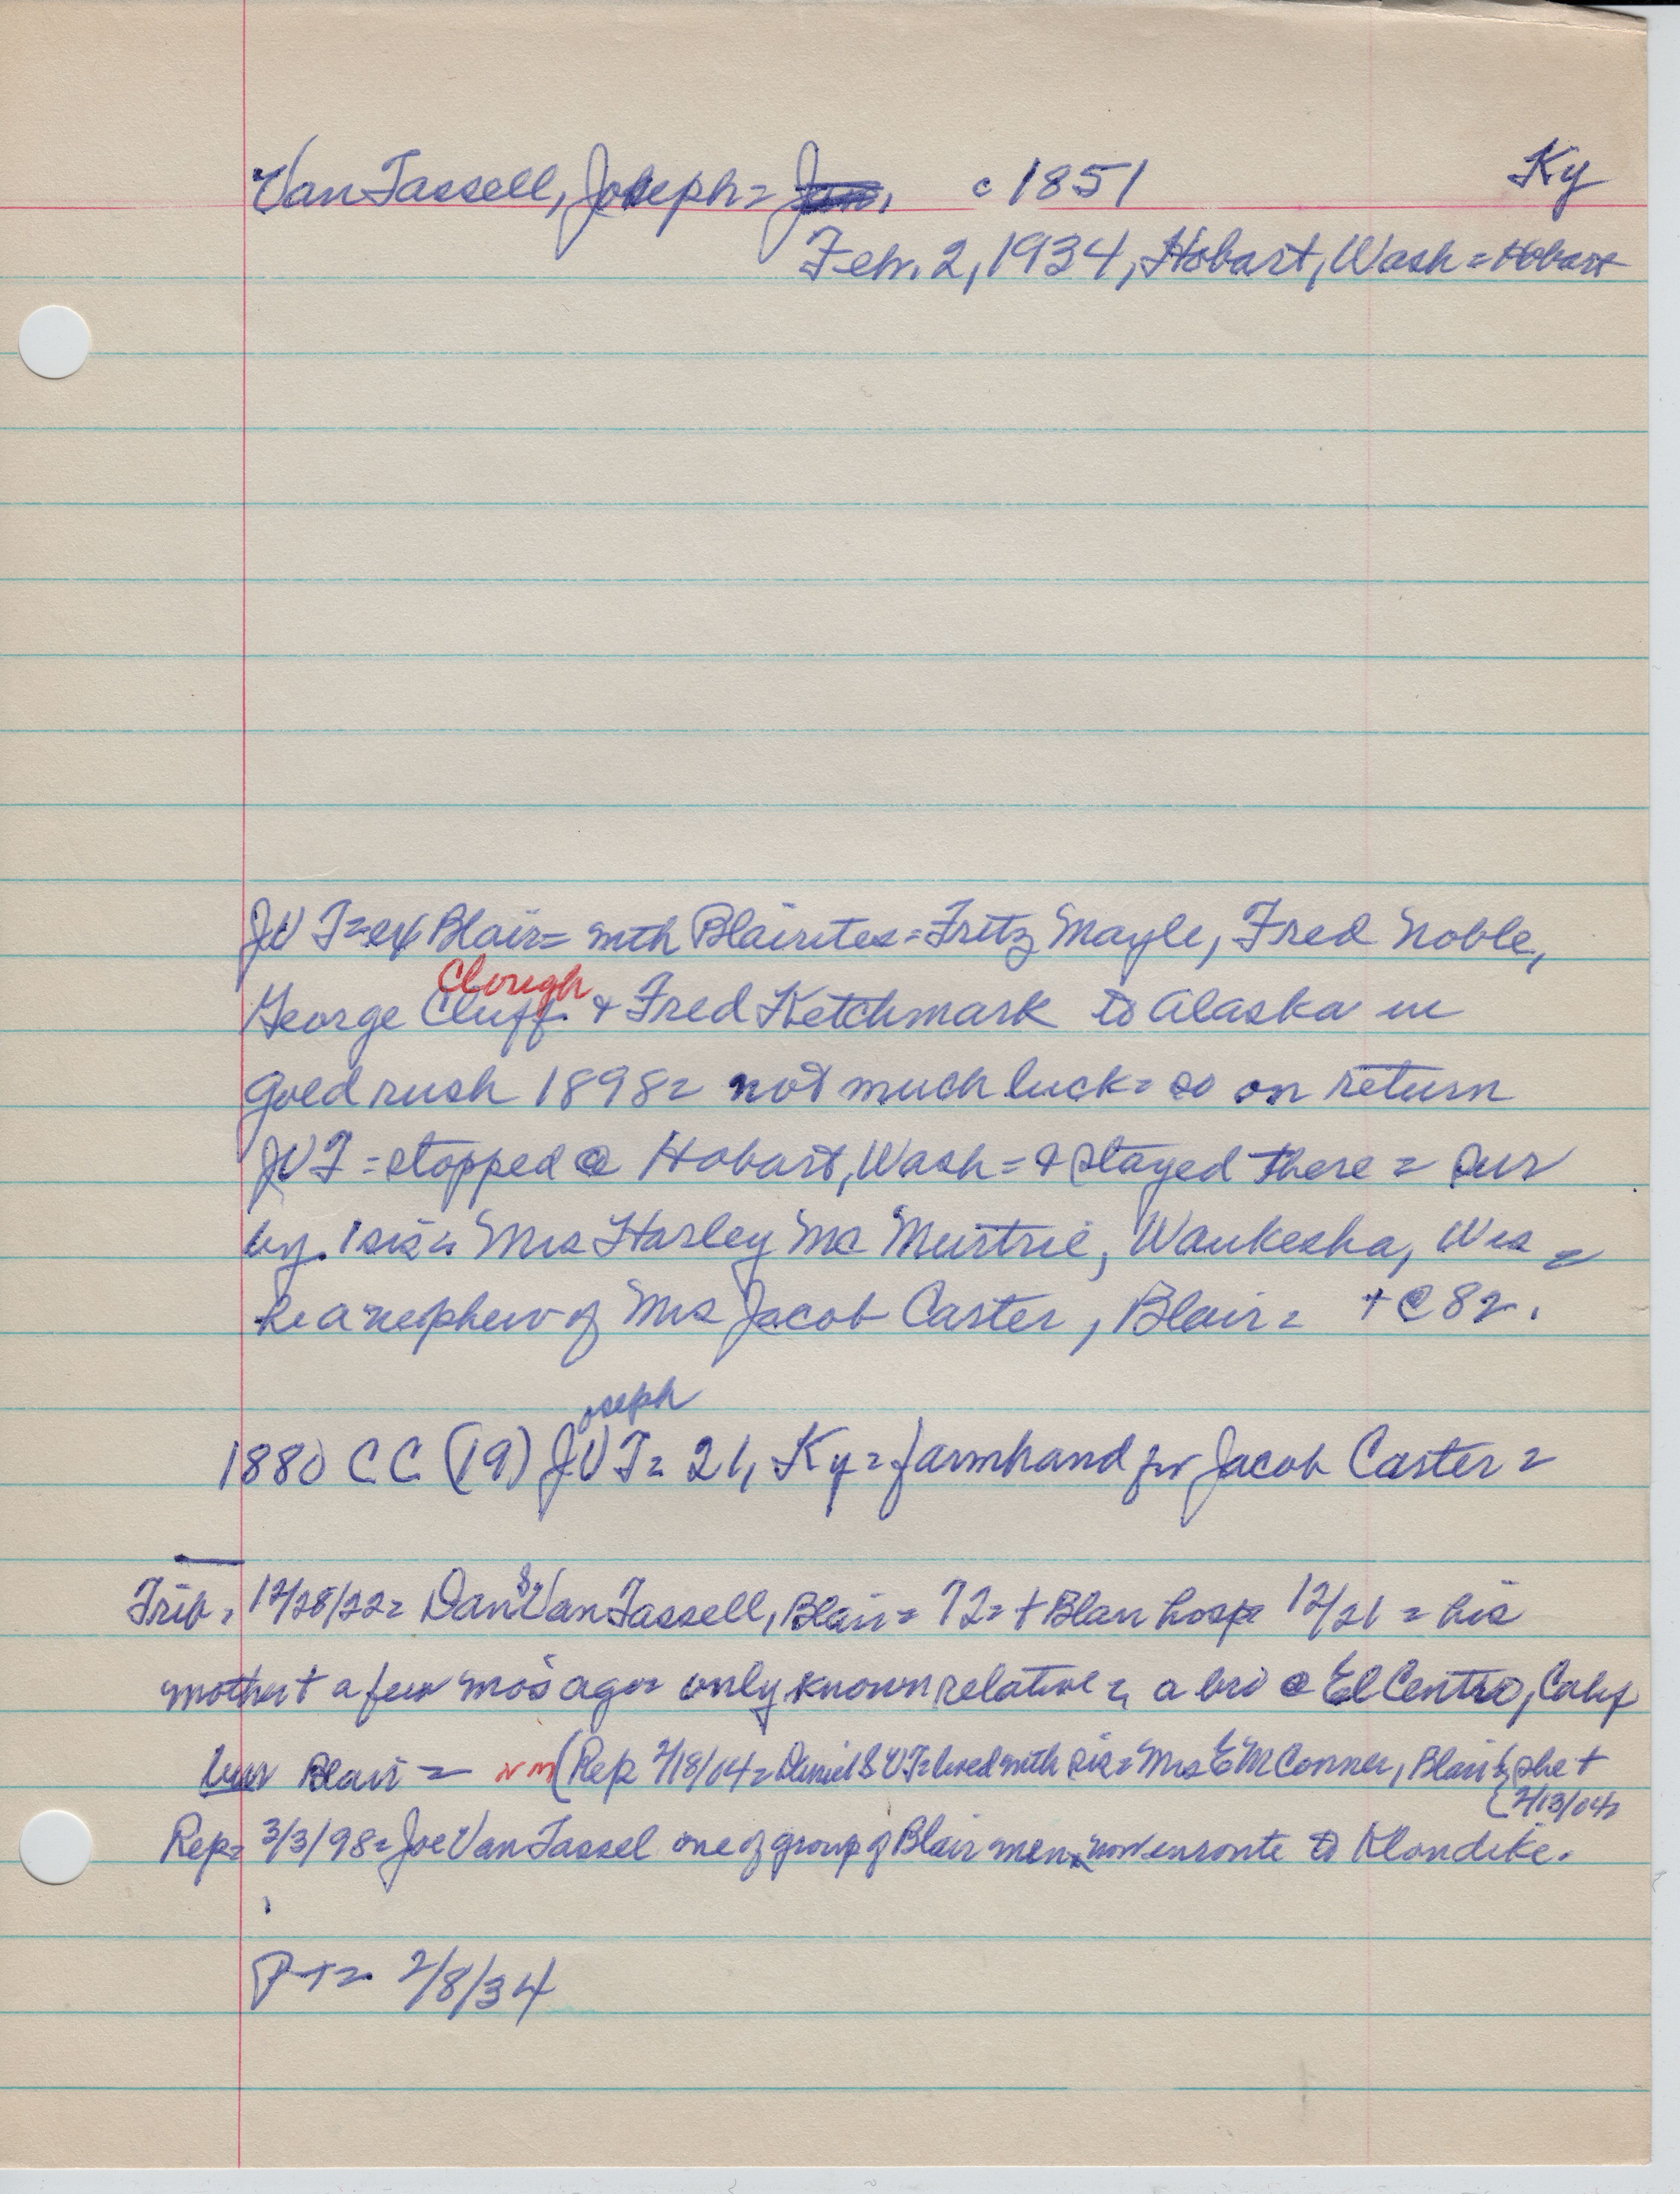 Van Tassell, Joseph = Jan, c 1851 Ky
Feb. 2, 1934, Hobart, Wash = Hobart
JVT = ex Blair = with Blairites = Fritz Mayle, Fred Noble,
Clough
George Cluff & Fred Ketchmark to Alaska in
gold rush 1898 = not much luck = so on return
JVT = stopped @ Hobart, Wash = & stayed there = sur
by. 1 sis = Mrs Harley Mc Murtrie, Waukesha, Wis =
he a nephew of Mrs Jacob Caster, Blair = + @ 82.
oseph
1880 CC (19) JVT = 21, Ky = farmhand for Jacob Caster =
Trib = 12/28/22 = Dan S Van Tassell, Blair = 72 = + Blair hosp 12/21 = his
mother + a few mos ago = only known relative = a bro @ El Centro, Calif
bur Blair = nm (Rep 2/18/04 = Daniel S VT = lived with sis = Mrs E M Conner, Blair & she +
(2/13/04)
Rep = 3/3/98 = Joe Van Tassel one of group of Blair men now enroute to Klondike.
PT = 2/8/34